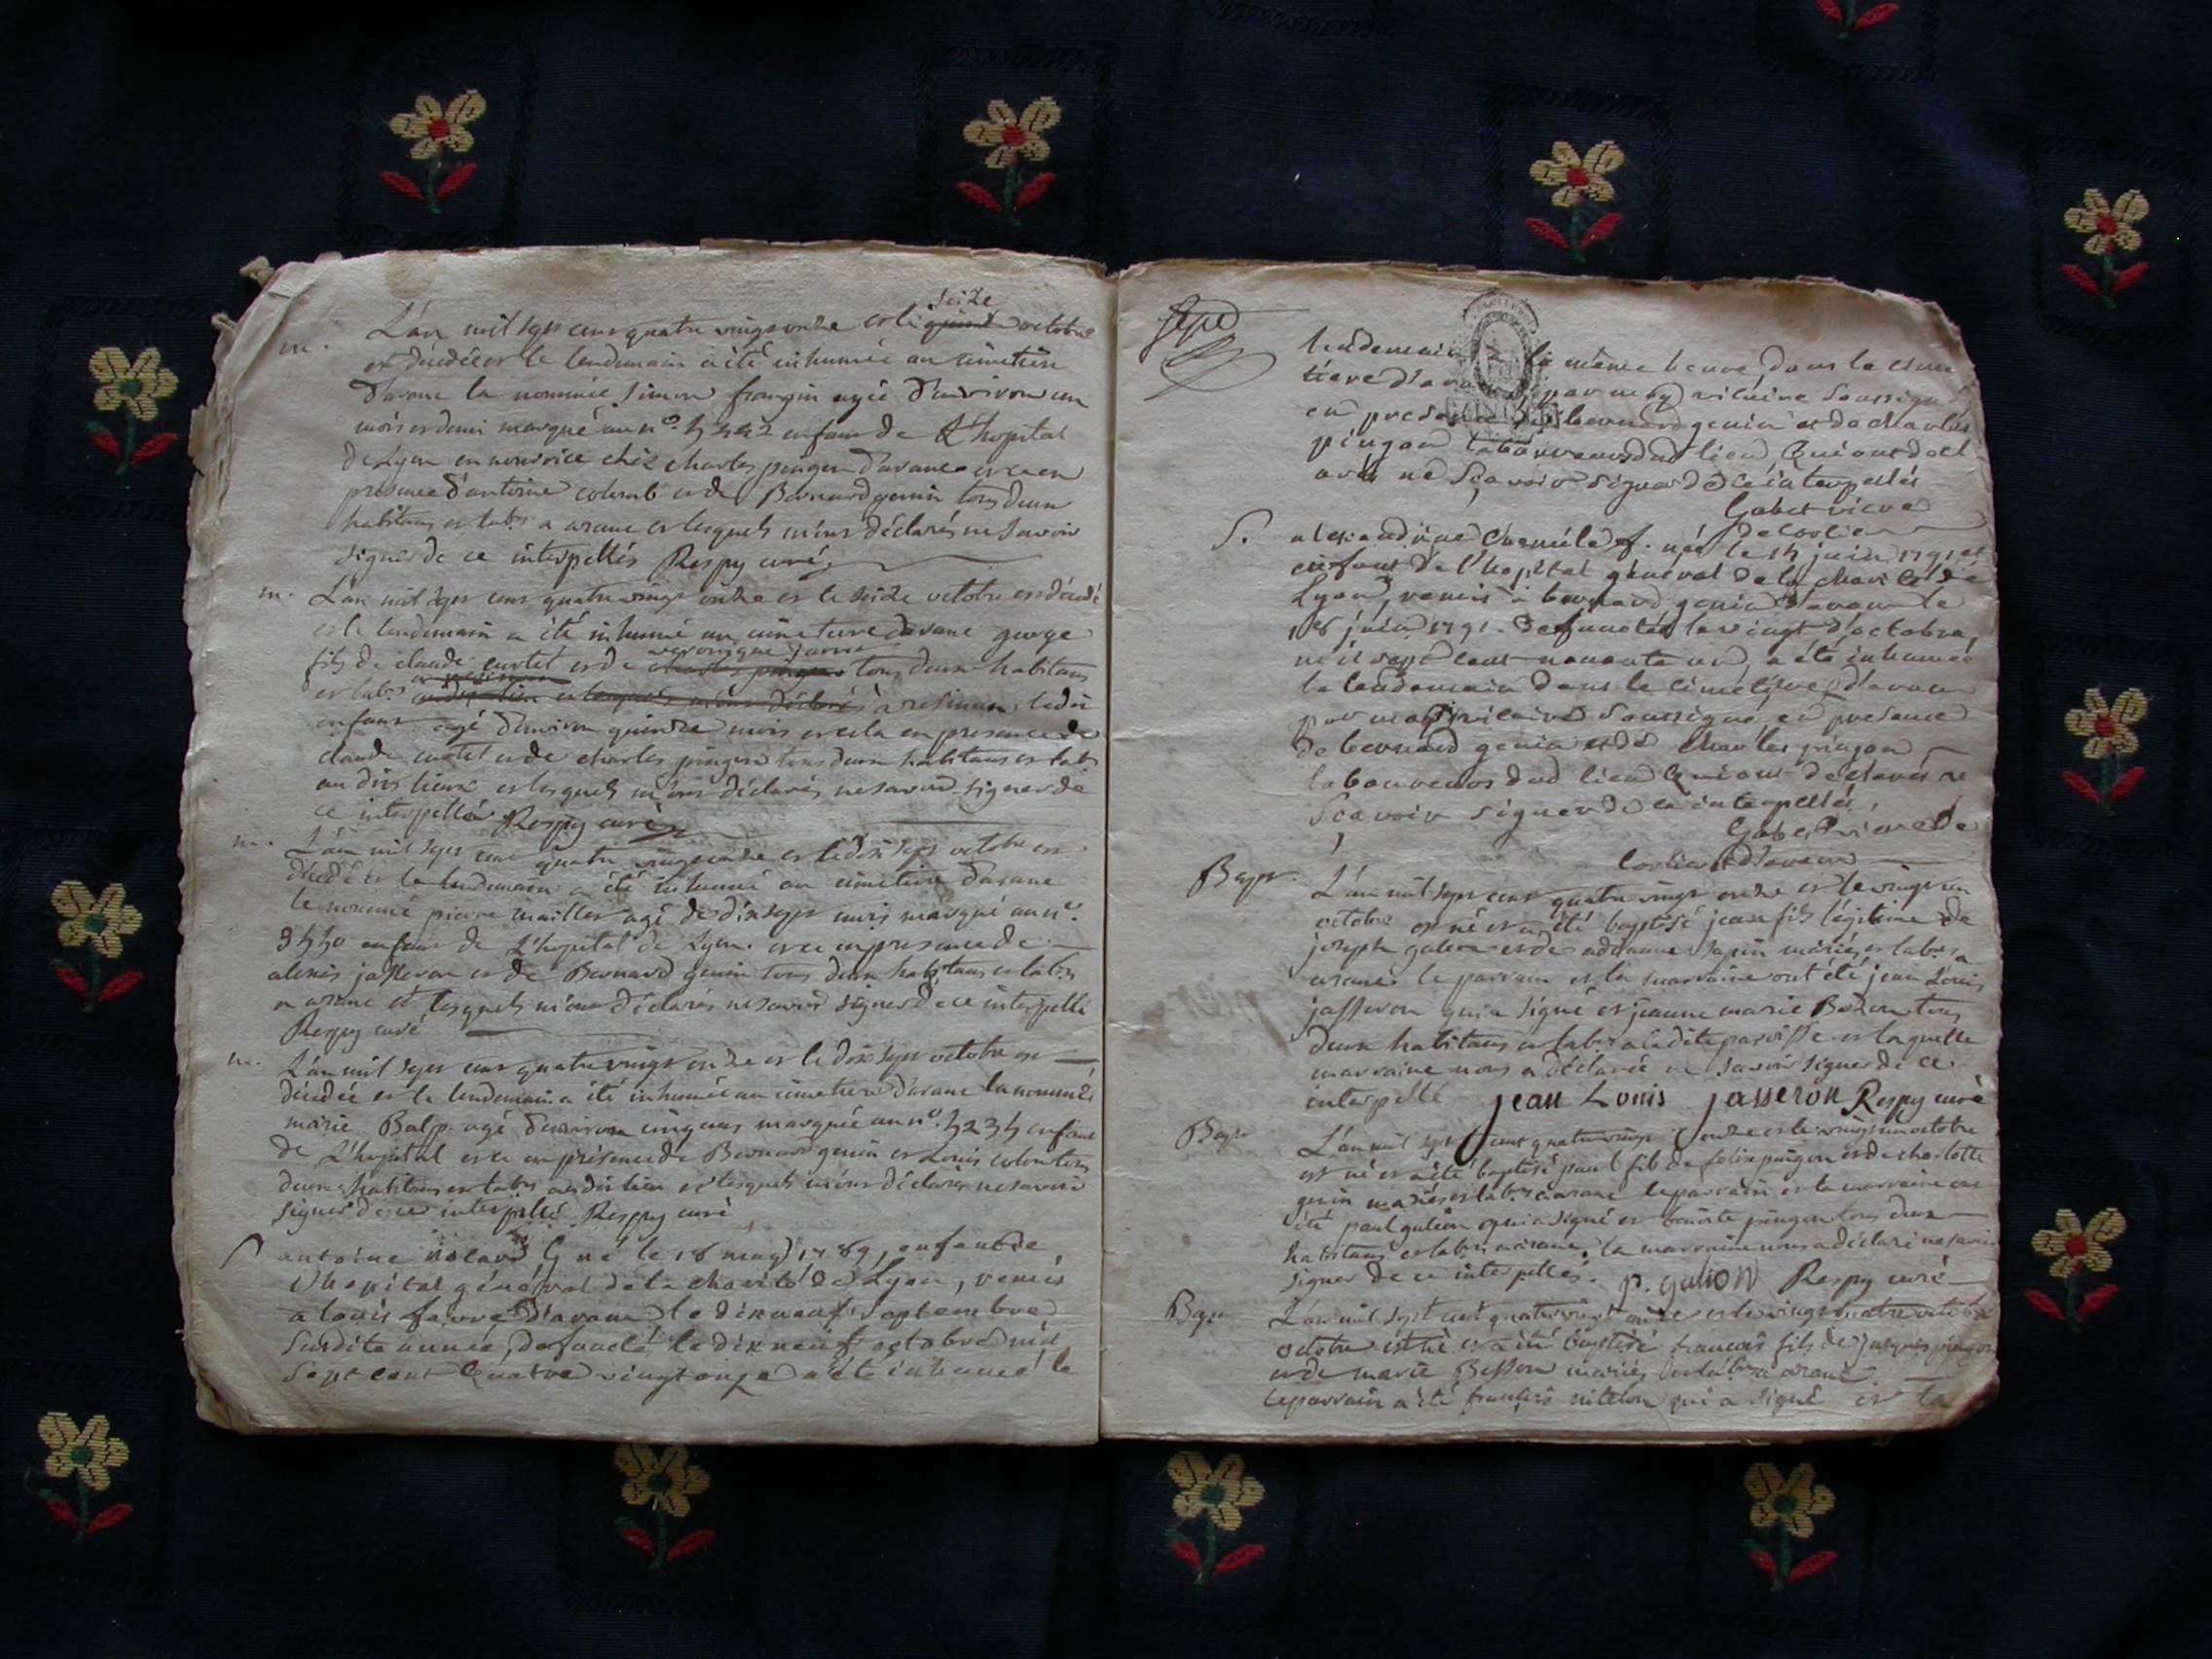 seize
m. L'an mil sept cens quatre vingt onze et le quinze octobre
est décédée et le lendemain a été inhumée au cimetière
d'arane la nommée Simone frangin agée d'environ un
mois et demi marqué au n°. enfant de L'hopital
de Lyon en nourrice chez charles pingon d'arane et ce en
présence d'antoine colomb et de Bernard genin tous deux
habitans et labrs a arane et lesquels m'ont déclarés ne savoir
signer de ce interpellés Respy curé
m. L'an mil sept cens quatre vingt onze et le seize octobre est décédé
et le lendemain a été inhumé au cimetiere d'arane george
fils de claude curtet et de veronique tous deux habitans
et labrs a resinan ledit
enfant agé d'environ quinze mois et cela en presence de
claude curtet et de charles pingon tous deux habitans et labrs
au dit lieux et lesquels m'ont déclarés ne savoir signer de
ce interpellés Respy curé
m. L'an mil sept cens quatre vingt onze et le dix sept octobre est
décédé et le lendemain a été inhumé au cimetiere d'arane
le nommé pierre mailler agé de dix sept mois marqué au n°.
enfant de L'hopital de Lyon. et ce en presence de
alexis jasseron et de Bernard genin tous deux habitans et labrs
a arane et lesquels m'ont déclarés ne savoir signer de ce interpellé
Respy curé
m. L'an mil sept cens quatre vingt onze et le dix sept octobre est
décédée et le lendemain a été inhumée au cimetiere d'arane la nommée
marie Balp. agé d'environ cinq ans marquée au n°. enfant
de L'hopital et ce en présence de Bernard genin et Louis colomb tous
deux habitans et labrs au dit lieu et lesquels m'ont déclarés ne savoir
signer de ce interpellé Respy curé
S antoine né le 18 may 1789, enfant de
l'hopital général de la charité de Lyon, remis
a louis favre d'arane le dix neuf septembre
susdite année, defuncté le dix neuf octobre mil
sept cent quatre vingt onze a été inhumé le
lendemain à même heure dans le cime
tiere d'arane par moy vicaire soussigné
en presence de bernard genin et de charles
pingon laboureurs dud lieu qui ont decl
arés ne sçavoir signer de ce interpellés
Gabet vicre
de corlier
S. alexandrine f. née le juin 1791 et
enfant de l'hopital général de la charité de
Lyon, remis a bernard genin d'arane le
18 juin 1791. defunctée le vingt d'octobre,
mil sept cent nonante un, a été inhumée
le lendemain dans le cimétiere d'arane
par moy vicaire soussigné, en presence
de bernard genin et de charles pingon
laboureurs dud lieu qui ont declarés ne
sçavoir signer de ce interpellés
Gabet vicre de
corlier et d'arane
Bapt. L'an mil sept cens quatre vingt onze et le vingt un
octobre est né et a été baptisé jean fils légitime de
joseph galion et de sapin mariés et labrs a
arane le parrain et la marraine ont été jean Louis
jasseron qui a signé et jeanne marie Bozon tous
deux habitans et labrs a la dite paroisse et laquelle
marraine nous a déclarée ne savoir signer de ce
interpellé jean Louis jasseron Respy curé
Bapt. L'an mil sept cens quatre vingt onze et le vingt un octobre
est né et a été baptisé paul fils de felix pingon et de charlotte
genin mariés et labrs a arane le parrain et la marraine ont
été paul galion qui a signé et benoite pingon tous deux
habitans et labrs a arane. la marraine nous a déclaré ne savoir
signer de ce interpellés. p. galion Respy curé
Bapt. L'an mil sept cent quatre vingt onze et le vingt quatre octobre
octobre est né et a été baptisé francois fils de jacques pingon
et de marie Besson mariés et labrs a arane
le parrain a été françois qui a signé et la